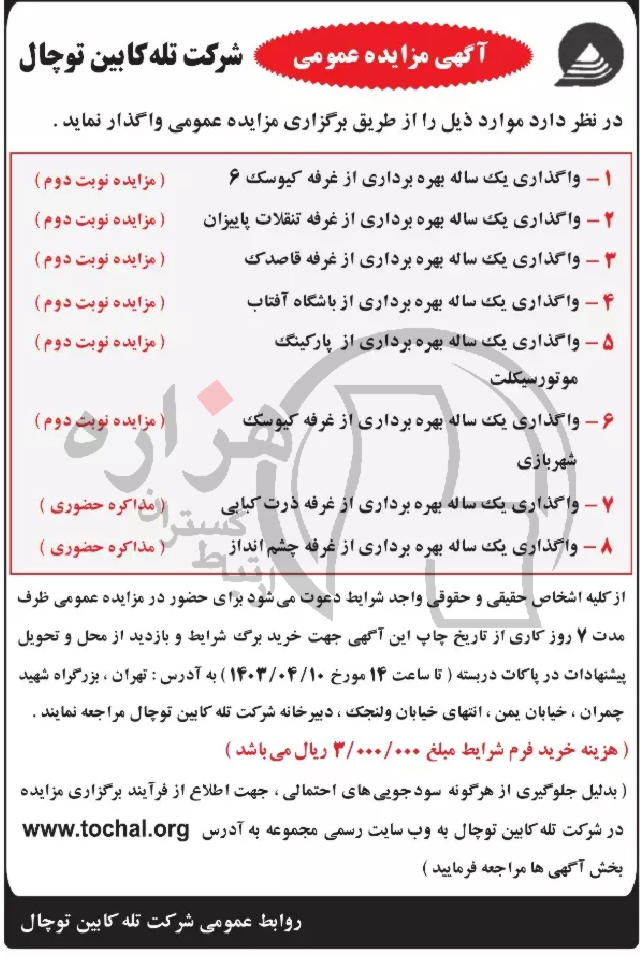 آگهی مزایده عمومی
شرکت تله کابین توچال
در نظر دارد موارد ذیل را از طریق برگزاری مزایده عمومی واگذار نماید .
۱- واگذاری یک ساله بهره برداری از غرفه کیوسک ۶ ( مزایده نوبت دوم )
۲- واگذاری یک ساله بهره برداری از غرفه تنقلات پاییزان ( مزایده نوبت دوم )
۳- واگذاری یک ساله بهره برداری از غرفه قاصدک ( مزایده نوبت دوم )
۴- واگذاری یک ساله بهره برداری از باشگاه آفتاب ( مزایده نوبت دوم )
۵- واگذاری یک ساله بهره برداری از پارکینگ ( مزایده نوبت دوم )
موتورسیکلت
۶- واگذاری یک ساله بهره برداری از غرفه کیوسک ( مزایده نوبت دوم )
شهربازی
۷- واگذاری یک ساله بهره برداری از غرفه ذرت کبابی ( مذاکره حضوری )
۸- واگذاری یک ساله بهره برداری از غرفه چشم انداز ( مذاکره حضوری )
هزاره
گستران
ارتباط
از کلیه اشخاص حقیقی و حقوقی واجد شرایط دعوت می شود برای حضور در مزایده عمومی ظرف
مدت ۷ روز کاری از تاریخ چاپ این آگهی جهت خرید برگ شرایط و بازدید از محل و تحویل
پیشنهادات در پاکات دربسته ( تا ساعت ۱۴ مورخ ۱۴۰۳/۰۴/۱۰ ) به آدرس : تهران ، بزرگراه شهید
چمران ، خیابان یمن ، انتهای خیابان ولنجک ، دبیرخانه شرکت تله کابین توچال مراجعه نمایند .
( هزینه خرید فرم شرایط مبلغ ۳/۰۰۰/۰۰۰ ریال می باشد )
( بدلیل جلوگیری از هرگونه سودجویی های احتمالی ، جهت اطلاع از فرآیند برگزاری مزایده
در شرکت تله کابین توچال به وب سایت رسمی مجموعه به آدرس www.tochal.org
بخش آگهی ها مراجعه فرمایید )
روابط عمومی شرکت تله کابین توچال